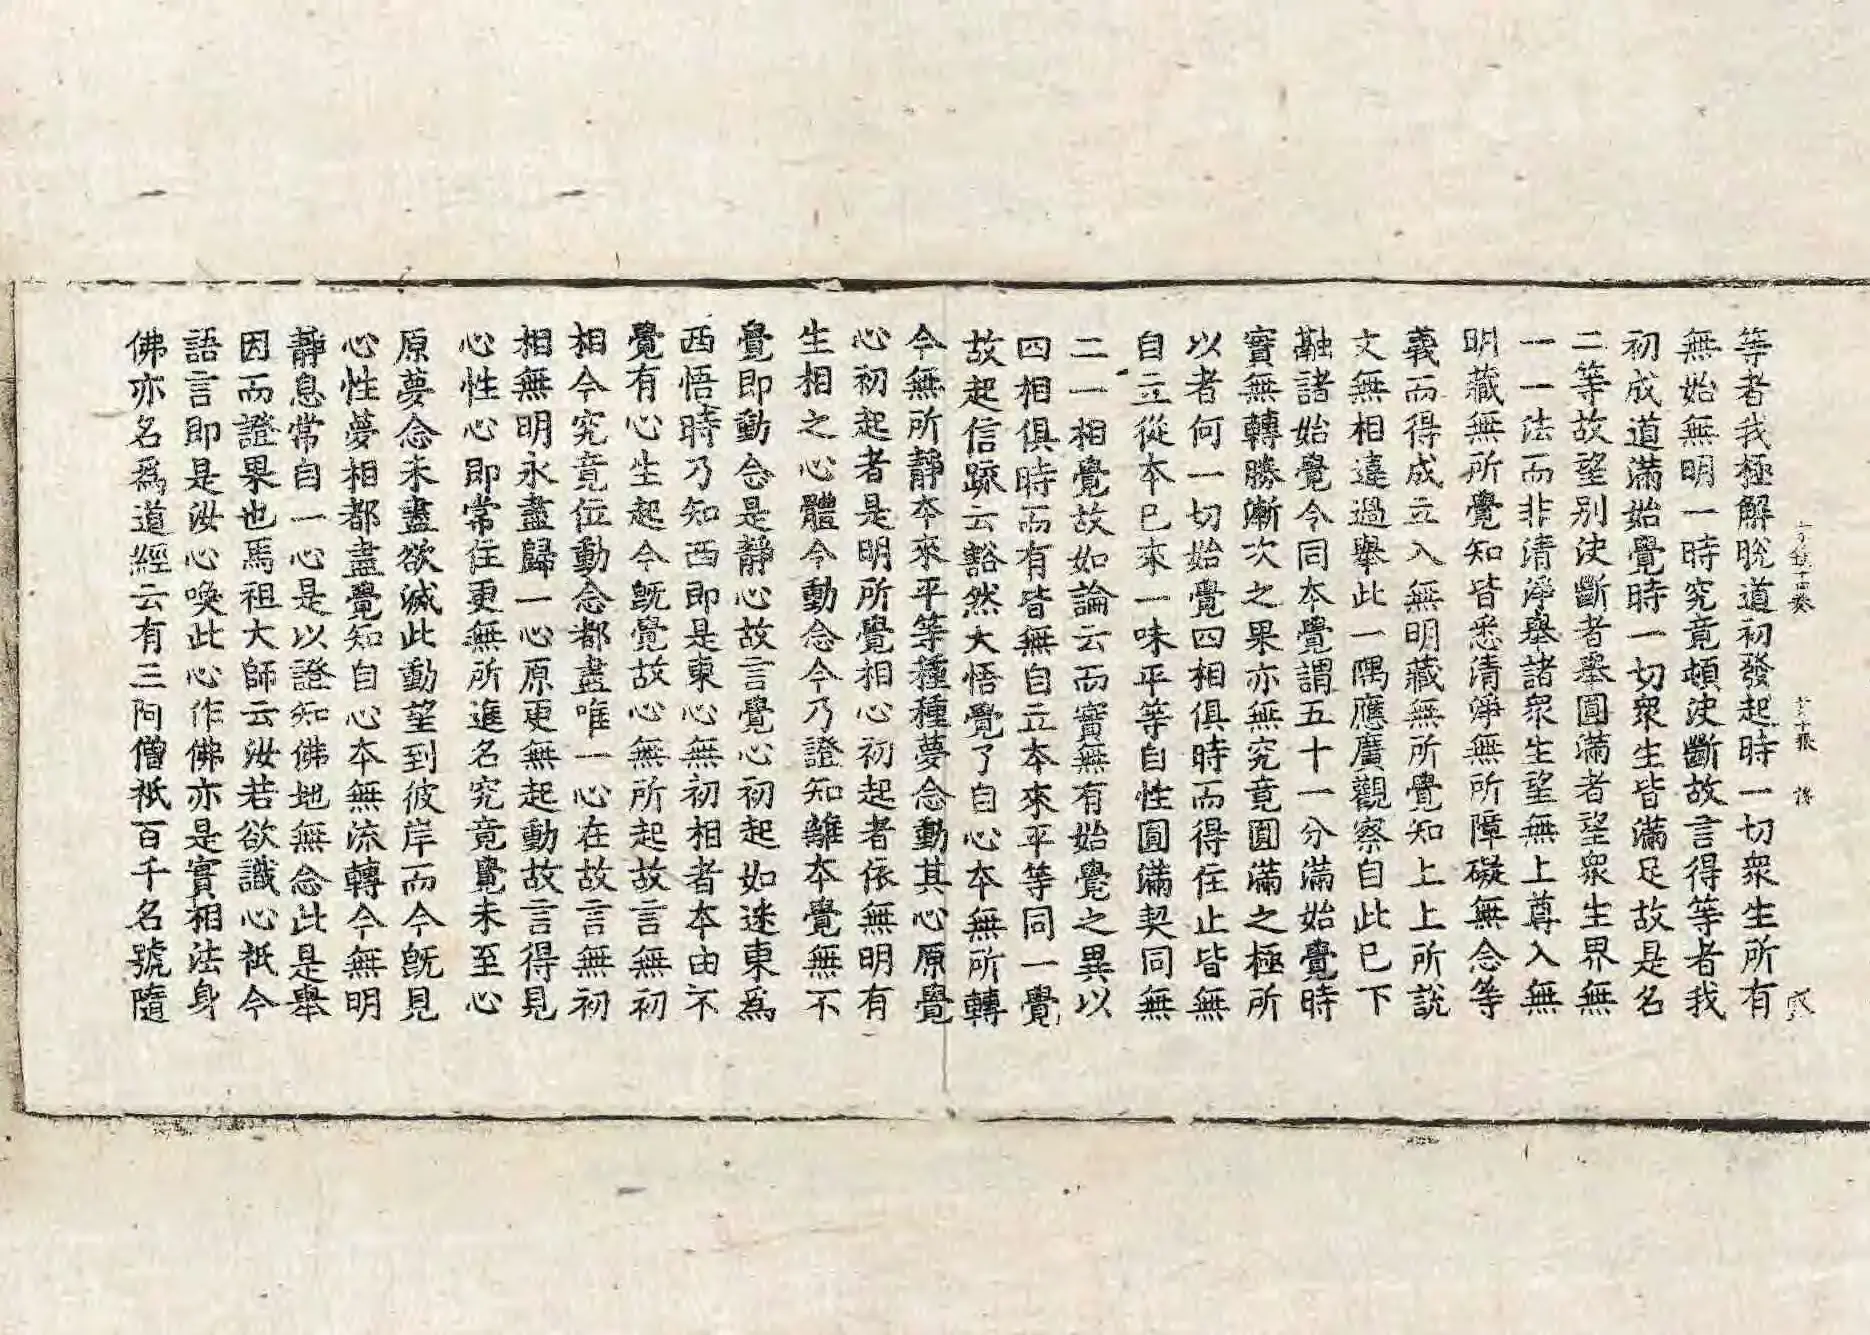 等者我極解脫道初發起時一切衆生所有
無始無明一時究竟頓決斷故言得等者我
初成道滿始覺時一切衆生皆滿足故是名
二等故望別決斷者舉圓滿者望衆生界無
一一法而非清淨舉諸衆生望無上尊入無
明藏無所覺知皆悉清淨無所障礙無念等
義而得成立入無明藏無所覺知上上所說
文無相違過舉此一隅應廣觀察自此已下
融諸始覺令同本覺謂五十一分滿始覺時
實無轉勝漸次之果亦無究竟圓滿之極所
以者何一切始覺四相俱時而得住止皆無
自立從本已來一味平等自性圓滿契同無
二一相覺故如論云而實無有始覺之異以
四相俱時而有皆無自立本來平等同一覺
故起信疏云豁然大悟覺了自心本無所轉
今無所靜本來平等種種夢念動其心原覺
心初起者是明所覺相心初起者依無明有
生相之心體今動念今乃證知離本覺無不
覺即動念是靜心故言覺心初起如迷東爲
西悟時乃知西即是東心無初相者本由不
覺有心生起今旣覺故心無所起故言無初
相今究竟位動念都盡唯一心在故言無初
相無明永盡歸一心原更無起動故言得見
心性心即常住更無所進名究竟覺未至心
原夢念未盡欲滅此動望到彼岸而今旣見
心性夢相都盡覺知自心本無流轉今無明
靜息常自一心是以證知佛地無念此是舉
因而證果也馬祖大師云汝若欲識心祇今
語言即是汝心喚此心作佛亦是實相法身
佛亦名爲道經云有三阿僧祇百千名號隨